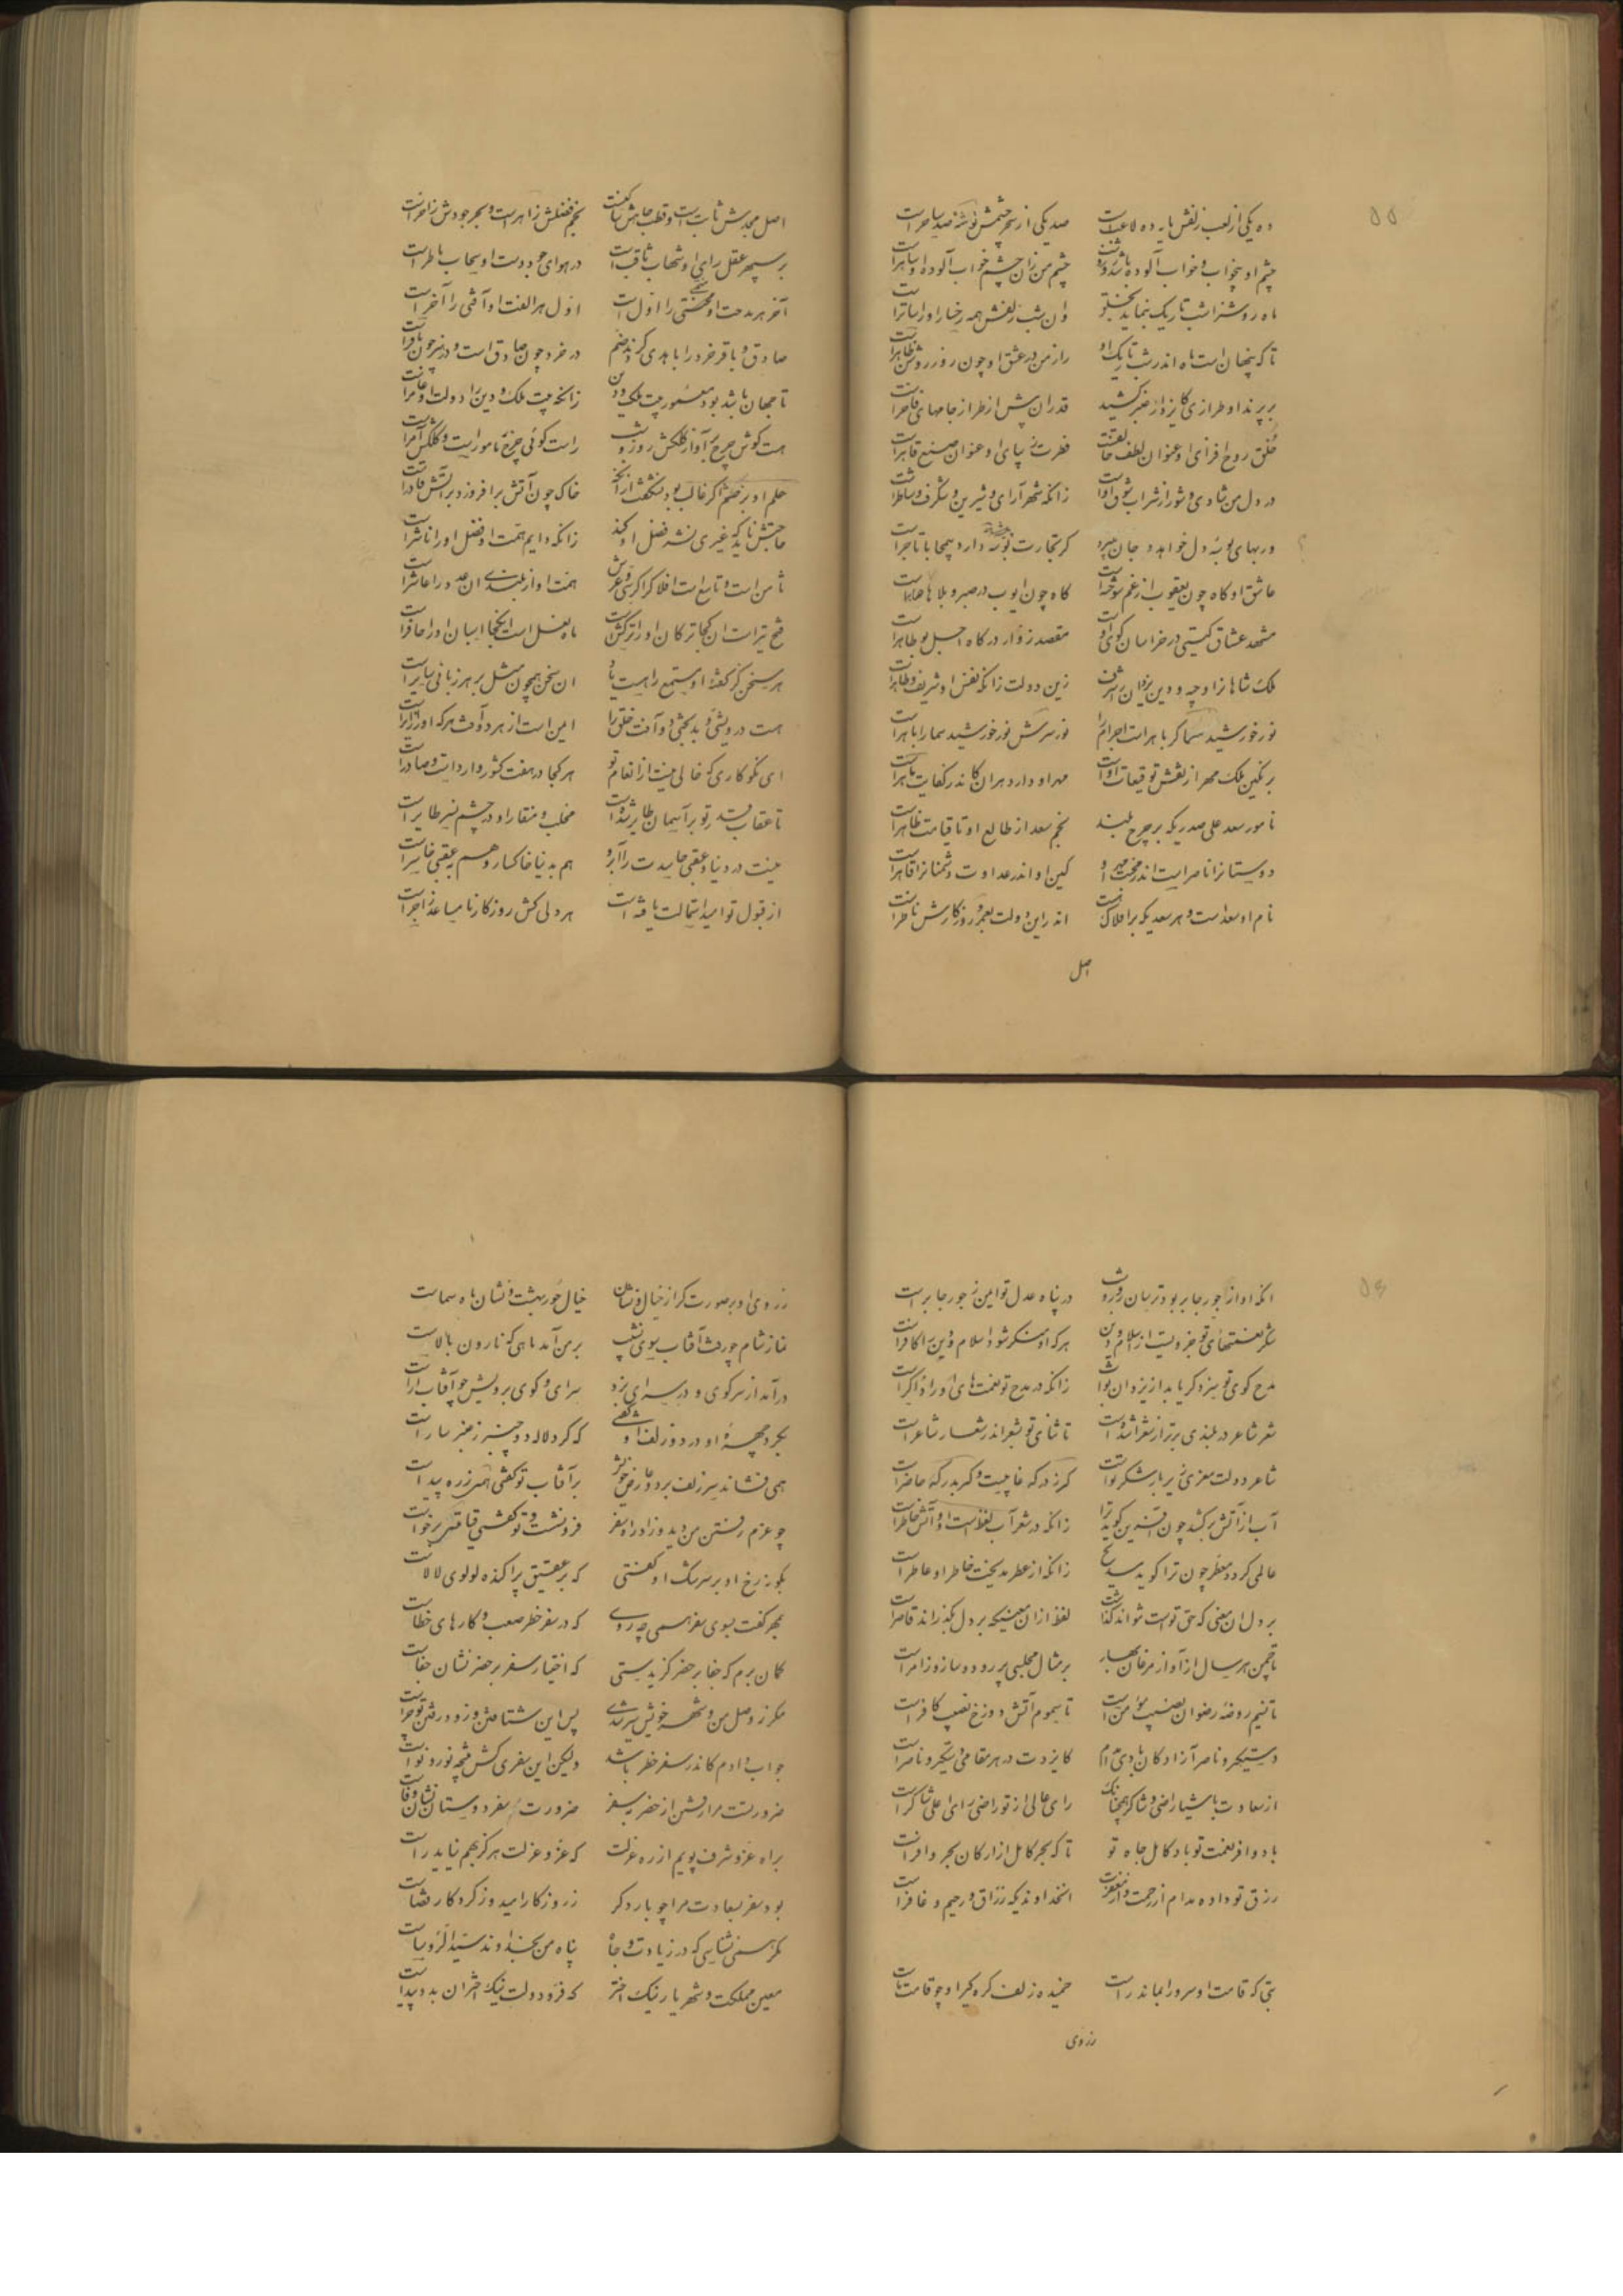 ۵۵
ده یکی از لعب زلفش یا ده لاعبست صد یکی از سحر چشمش نوشه صد ساحرست
چشم او بیخواب و خواب آلوده باشد چشم من زان چشم خواب آلوده او ساهرست
ماه روشن را شب تاریک بنماید بخلق وان شب زلفش همه رخسار او را ساترست
تا که پنهان است ماه اندر شب تاریک او راز من در عشق او چون روز روشن ظاهرست
بر پرند او طرازی کایزد از عنبر کشید قدر آن بیش از طراز جامهای فاخرست
خلق روح افزای او عنوان لطف خالقست فطرت زیبای او عنوان صنع قاهرست
در دل من شادی و شور از شراب شوق اوست زانکه شهر آرای و شیرین و شگرف و شاطرست
ور بهای بوسه دل خواهد و جان میبرد گر تجارت بوسه دارد هیچ ابا تاجرست
عاشق او گاه چون یعقوب از غم سوخته است گاه چون ایوب در صبر و بلاها صابرست
مشهد عشاق گیتی در خراسان کوی اوست مقصد زوار درگاه اجل بوطاهرست
ملک شاها نزا وجیه و دین یزدان را شرف زین دولت زانکه نفس او شریف و طاهرست
نور خورشید سما گر باهر است اجرام را نور سرش نور خورشید سما را باهرست
بر نگین ملک مهر از نقش توقیعات اوست مهر او دارد هر آن کاندر کفایت ماهرست
نامور سعد علی صدریکه بر چرخ بلند نجم سعد از طالع او تا قیامت ظاهرست
دوستانرا ناصرست اندر محبت مهر او کین او اندر عداوت دشمنانرا قاهرست
نام او سعد است و هر سعدیکه بر افلاک هست اندر این دولت بعمر و روزگارش ناظرست
اصل
اصل مجدش ثابت است و قطب جاهش ساکنست نجم فضلش زاهرست و بحر جودش زاخرست
بر سپهر عقل رای او شهاب ثاقب است در هوای جود دست او سحاب ماطرست
آخر هر مدحت او محنتی را اول است اول هر الفت او آفتی را آخرست
صادق و باقر خرد را با هدی کردند ضم در خرد چون صادق است و در هنر چون باقرست
تا جهان باشد بود معمور بیت ملک و دین زانکه بیت ملک و دین را دولت او عامرست
هست گوش چرخ بر آواز کلکش روز و شب راست گوئی چرخ مامورست و کلکش آمرست
حلم او بر خشم اگر غالب بود نشگفت از آنک خاک چون آتش بر افروزد بر آتش قادرست
حاجتش ناید که غیری نشر فضل او کند زانکه دایم همت او فضل او را ناشرست
ثامن است و تاسع است افلاک را کرسی و عرش همت او از بلندی آن عدد را عاشرست
فتح تیرست آن کجا ترکان او را ترکش است ماه نعل است آن کجا اسبان او را حافرست
هر سخن کز گفته او مستمع را هست یاد آن سخن همچون مثل بر هر زبانی سایرست
هست درویشی و بدبختی دو آفت خلق را ایمن است از هر دو آفت هر که او را زایرست
ای نکو کاری که خالی نیست از انعام تو هر کجا در هفت کشور وارد است و صادرست
تا عقاب قدر تو بر آسمان طایر شدست مخلب و منقار او در چشم نسر طایرست
نیست در دنیا و عقبی حاسدت را آبرو هم بدنیا خاکسار و هم بعقبی خاسرست
از قبول تو امید استمالت یافته است هر دلی کش روزگار نامساعد زاجرست
۵۶
آنکه او از جور جابر بود ترسان روز و شب در پناه عدل تو ایمن ز جور جابرست
شکر نعمتهای تو جزویست از اسلام و دین هر که او منکر شود اسلام و دین را کافرست
مدح گوی تو سزد گر یابد از یزدان ثواب زانکه در مدح تو نعمت های او را ذاکرست
شعر شاعر در بلندی برتر از شعرا شدست تا ثنای تو بشعر اندر شعار شاعرست
شاعر دولت معزی زیر بار شکر تست گر ز درگه غایبست و گر بدرگه حاضرست
آب از آتش برکشد چون آفرین گوید ترا زانکه در شعر آب لفظ است او و آتش خاطرست
عالمی گردد معطر چون ترا گوید مدیح زانکه از عطر مدیحت خاطر او عاطرست
بر دل آن معنی که حق تست نتواند گذشت لفظ از آن معنیکه بر دل بگذراند قاصرست
تا چمن هر سال از آواز مرغان بهار بر مثال مجلسی پر رود و ساز و زامرست
تا نسیم روضه رضوان نصیب مؤمن است تا سموم آتش دوزخ نصیب کافرست
دستگیر و ناصر آزادگان بادی مدام کایزدت در هر مقامی دستگیر و ناصرست
از سعادت باش راضی و شاکر همچنانک رای عالی از تو راضی رای اعلی شاکرست
باد وافر نعمت تو باد کامل جاه تو تا که بحر کامل از ارکان بحر وافرست
رزق تو داده مدام از رحمت و از مغفرت آنخداوندیکه رزاق و رحیم و غافرست
بتی که قامت او سرو را بماند راست خمیده زلف گره گیر او چو قامت ماست
ز روی
ز روی او بر صورت گر از خیال و نشان خیال حور بهشت و نشان ماه سماست
نماز شام چو رفت آفتاب سوی نشیب بر من آمد ماهی که نارون بالاست
در آمد از سر کوی و در سرای بزد سرای و کوی برویش چو آفتاب آراست
بگرد چهره او در دو زلف او گفتی که گرد لاله دو چنبر ز عنبر ساراست
همی فشاند سر زلف بر دو عارض خویش بر آفتاب تو گفتی همی زره پیداست
چو عزم رفتن من دید و زاد راه سفر فرو نشست و تو گفتی قیامتی برخواست
بگونه رخ او بر سرشک او گفتی که بر عقیق پراکنده لولوی لالاست
بمهر گفت بسوی سفر همی چه روی که در سفر خطر صعب و کارهای خطاست
گمان برم که جفا بر حضر گزیدستی که اختیار سفر بر حضر نشان جفاست
مگر ز وصل من و شهر خویش سیر شدی پس این شتافتن و زود رفتن تو چراست
جواب دادم کاندر سفر خطر باشد ولیکن این سفری کش نتیجه نور و نواست
ضرورتست مرا رفتن از حضر بسفر ضرورت سفر دوستان نشان وفاست
براه عز و شرف پویم از ره عزلت که عز و عزلت هرگز بهم نیاید راست
بود سفر بسعادت مرا چو بار دگر ز روزگار امید و ز کردگار قضاست
مگر سفر نشایی که در زیادت و جاه پناه من بخداوند سید الرؤساست
معین مملکت و شهریار نیک اختر که فر و دولت نیک اختران بدو پیداست